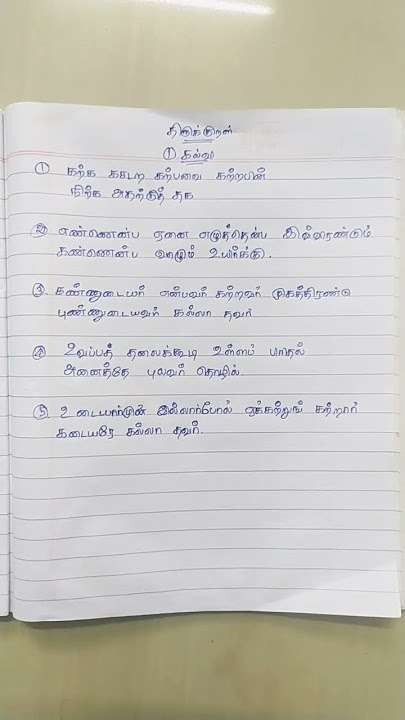 திருக்குறள்
① கல்வி
① கற்க கசடற கற்பவை கற்றபின்
நிற்க அதற்குத் தக
② எண்ணென்ப ஏனை எழுத்தென்ப இவ்விரண்டும்
கண்ணென்ப வாழும் உயிர்க்கு.
③. கண்ணுடையர் என்பவர் கற்றவர் முகத்திரண்டு
புண்ணுடையவர் கல்லா தவர்
④ உவப்பத் தலைக்கூடி உள்ளப் பிரிதல்
அனைத்தே புலவர் தொழில்.
⑤ உடையார்முன் இல்லார்போல் ஏக்கற்றுங் கற்றார்
கடையரே கல்லா தவர்.